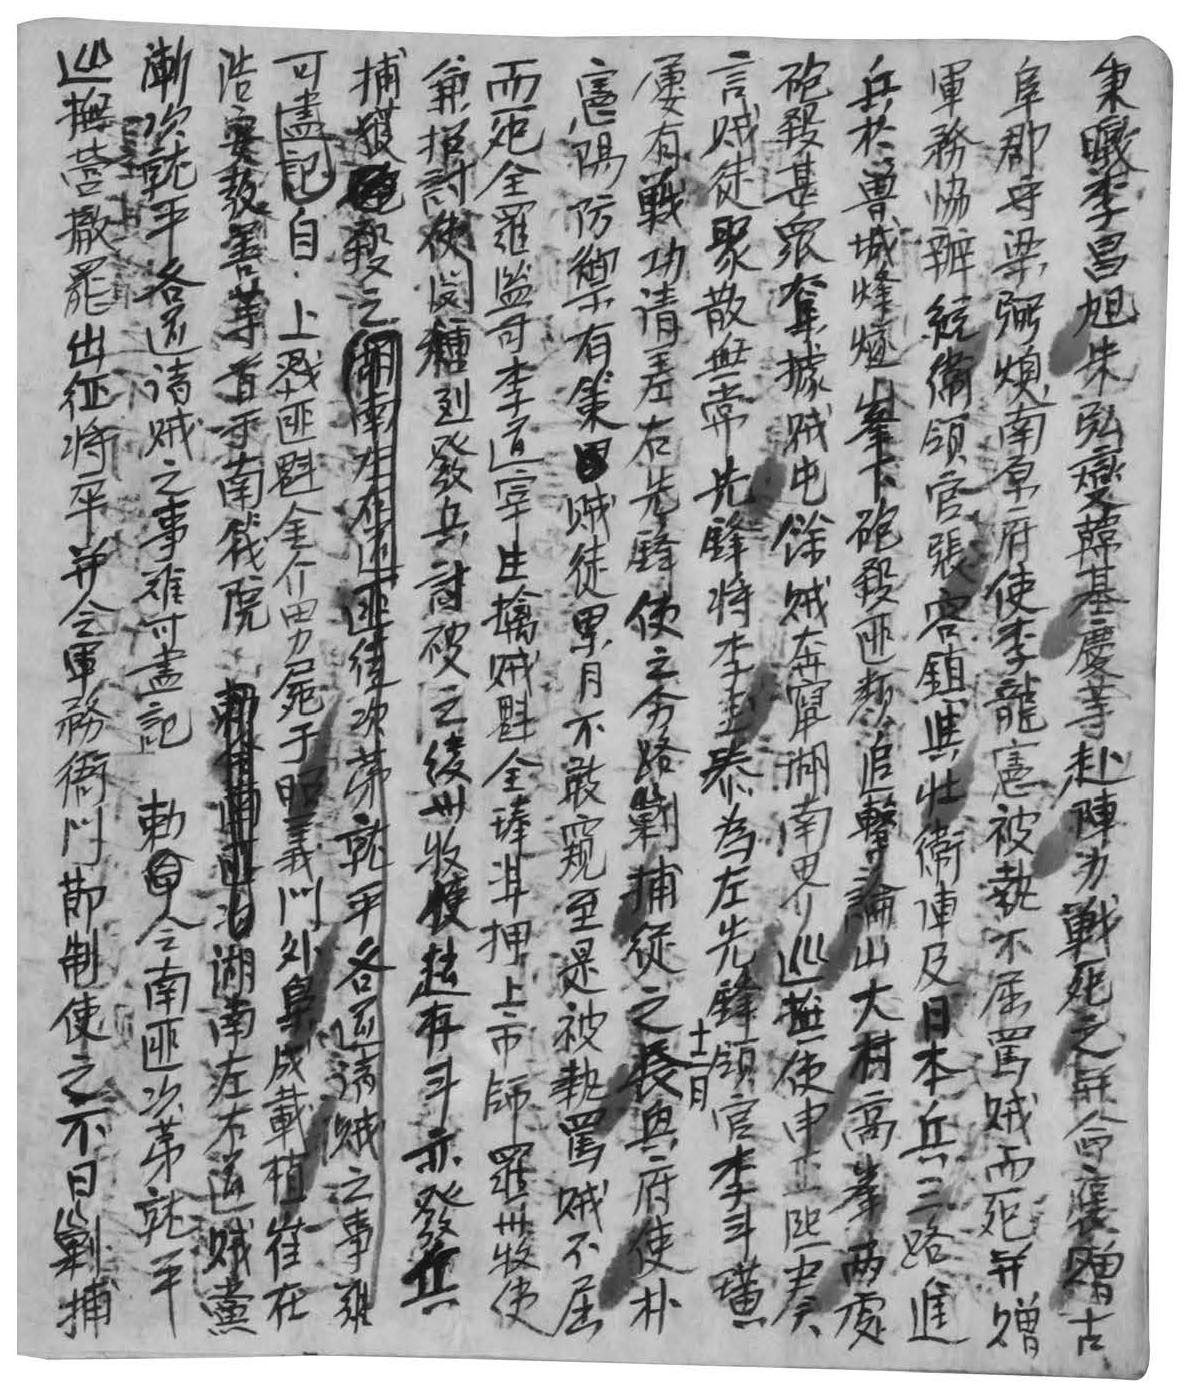 秉職李昌旭朱弘燮韓基慶等赴陣力戰死之并命褒贈古
阜郡守梁弼煥南原府使李龍憲被執不屈罵賊而死并贈
軍務協辦統衛領官張容鎮與壯衛陣及日本兵三路進
兵於魯城烽燧峯下砲殺匪類追擊論山大村高峯兩處
砲殺甚衆奪據賊屯餘賊奔竄湖南界巡撫使申正熙奏
言賊徒聚散無常先鋒將李圭泰為左先鋒領官李斗璜
屢有戰功請差右先鋒使之分路剿捕從之十二月長興府使朴
憲陽防禦有策賊徒累月不敢窺至是被執罵賊不屈
而死全羅監司李道宰生擒賊魁全琫準押上京師羅州牧使
兼招討使閔種烈發兵討破之綾州牧使趙存斗亦發兵
捕獲殺之湖南左右道匪徒次第就平各道請賊之事難
可盡記自上戮匪魁金介男屍于昭義門外梟成載植崔在
浩安教善等首于南伐院湖南左右道賊黨
漸次就平各道請賊之事難可盡記 勅令今南匪次第就平
巡撫營撤罷出征將卒并令軍務衙門節制使之不日剿捕